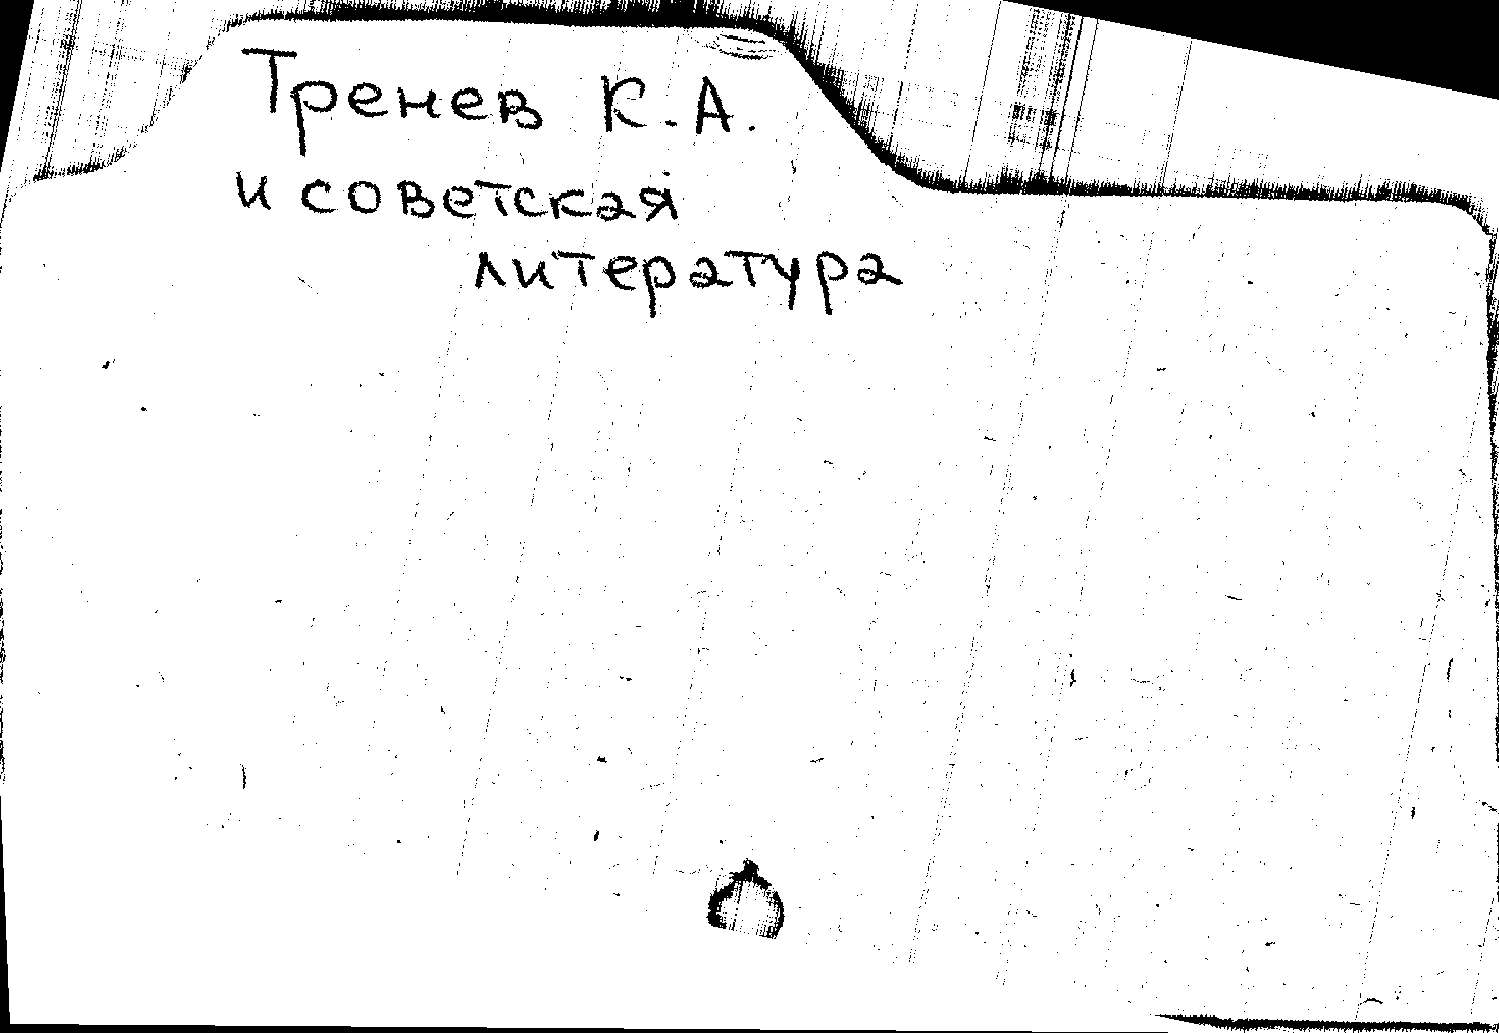 Тренев К.А.
и советская
литература